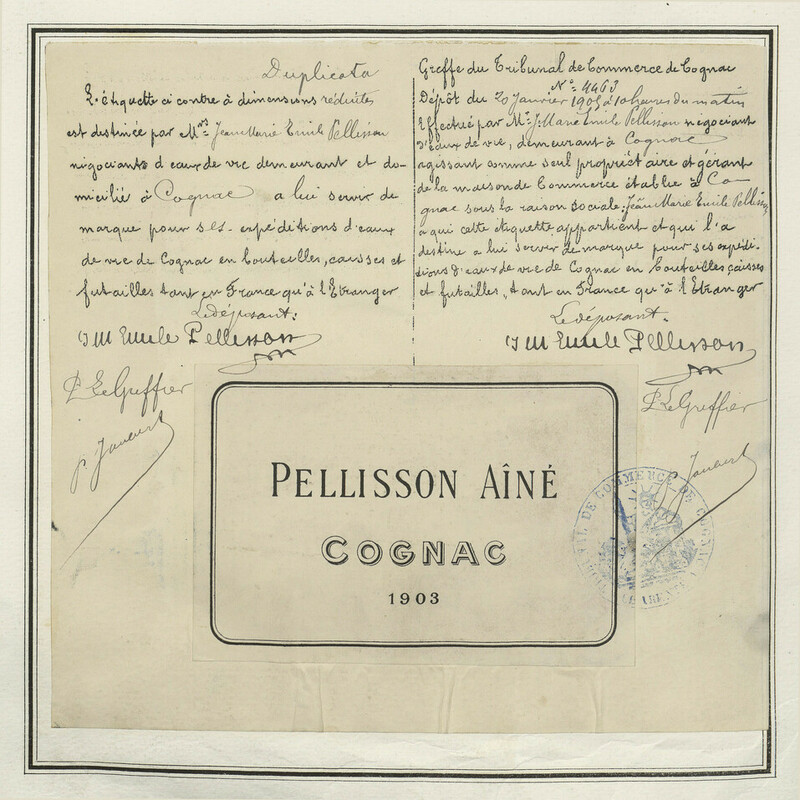 Duplicata
L'étiquette ci contre à dimensions réduites
est destinée par Mrs Jean Marie Emile Pellisson
négociants d'eaux de vie demeurant et do-
micilié à Cognac a lui servir de
marque pour ses expéditions d'eaux
de vie de Cognac en bouteilles, caisses et
futailles tant en France qu'à l'Etranger
Le déposant:
JM Emile Pellisson
P. Le Greffier
P. Joubert
Greffe du Tribunal de Commerce de Cognac
No: 4463
Dépôt du 20 Janvier 1905 à 10 heures du matin
Effectué par Mr J. Marie Emile Pellisson négociant
d'eaux de vie, demeurant à Cognac
agissant comme seul propriétaire et gérant
de la maison de Commerce établie à Co-
gnac sous la raison sociale: Jean Marie Emile Pellisson
a qui cette étiquette appartient et qui l'a
destine a lui servir de marque pour ses expédi-
tions d'eaux de vie de Cognac en bouteilles, caisses
et futailles, tant en France qu'à l'Etranger
Le déposant:
JM Emile Pellisson
P. Le Greffier
P. Joubert
PELLISSON AÎNÉ
COGNAC
1903
TRIBUNAL DE COMMERCE DE COGNAC